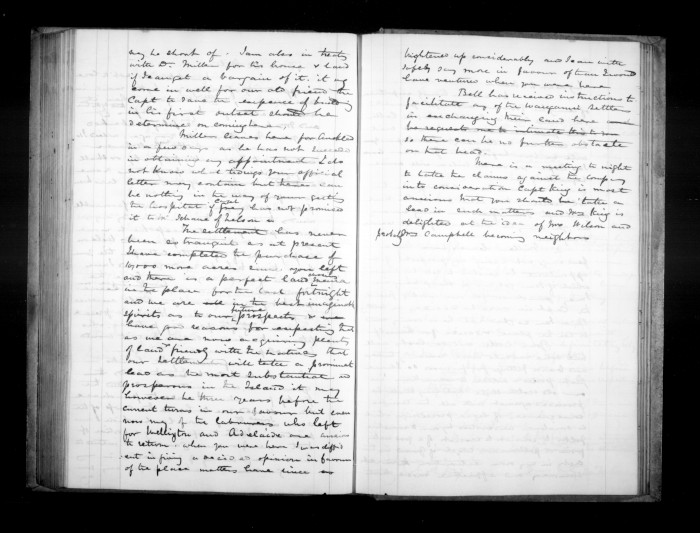 may be short of. I am also in treaty
with Dr. Miller for his house & land
if I can get a bargain of it. it may
come in well for our old friend the
Capt to save the expense of building
in his first outset should he
determine on coming here
Miller leaves here for
in a few days as he has not succeeded
in obtaining any appointment I do
not know what tidings your official
letter may contain but there can
be nothing in the way of your getting
the hospital if Grey has not promised
it to of Nelson
The settlement has never
been so tranquil as at present
I have completed the purchase of
10,000 more acres since you left
and there is a perfect land mania
in the place for the last fortnight
and we are in the best imaginable
spirits as to our future prospects &
have good reasons for expecting that
as we are now acquiring plenty
of land & friendly with the natives that
our Settlement will take a prominent
lead as the most substantial and
prosperous in the Island it may
however be three years before the
current turns in our favour but even
now many of the labourers who left
for Wellington and Adelaide are
to return. when you were here I was diffid
ent in giving a decided opinion in favour
of the place matters have since so
brightened up considerably and I can with
safety say more in favour of than I would
have ventured when you were here
Bell has received instructions to
facilitate any of the Settlers
in exchanging their land here
he requests me to intimate this to
so there can be no further obstacle
on that head.
There is a meeting to night
to take the claims against the company
into consideration Capt King is most
anxious that you should take a
lead in such matters and Mrs King is
delighted at the idea of Mrs Wilson and
probably Mrs Campbell becoming neighbors